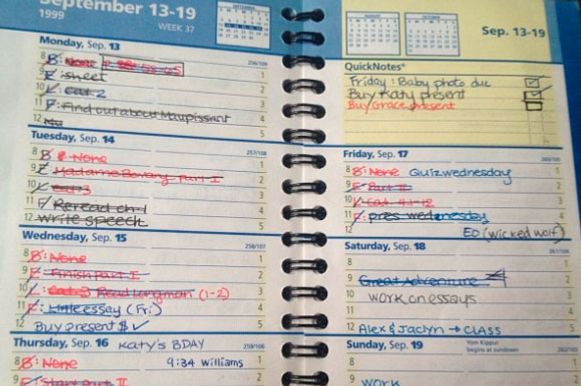 September 13-19
1999
WEEK 37
Monday, Sep. 13
256/109
8 B: None 1
9 E: Sheet
10 L: Cat 2 3
11 F: Find out about Maupissant 4
12 5
Tuesday, Sep. 14
257/108
8 B: None 1
9 E: Madame Bovary Part I 2
10 L: Cat 3 3
11 F: Reread ch 1 4
12 write speech 5
Wednesday, Sep. 15
258/107
8 B: None 1
9 E: Finish Part I 2
10 L: Cat 3 Read Longman (1-2) 3
11 F: Little essay (Fri) 4
Buy present $ ✓ 5
Thursday, Sep. 16 Katy's BDAY
259/106
8 B: None 9:34 Williams 1
E: Start Part II 2
Sep. 13-19
AUGUST
OCTOBER
QuickNotes
Friday: Baby photo due
Buy Katy present
Buy Grace present
Friday, Sep. 17
260/105
8 B: None Quiz wednesday 1
9 E: Part II 2
10 L: Cat 4 1-12 3
11 F: pres wednesday 4
12 EO (wicked wolf)
Saturday, Sep. 18
261/104
8 1
9 Great Adventure 2
10 work on essays 3
11 4
12 Alex & Jaclyn → CLASS 5
Sunday, Sep. 19
Yom Kippur
begins at sundown
262/103
8 1
9 WORK 2